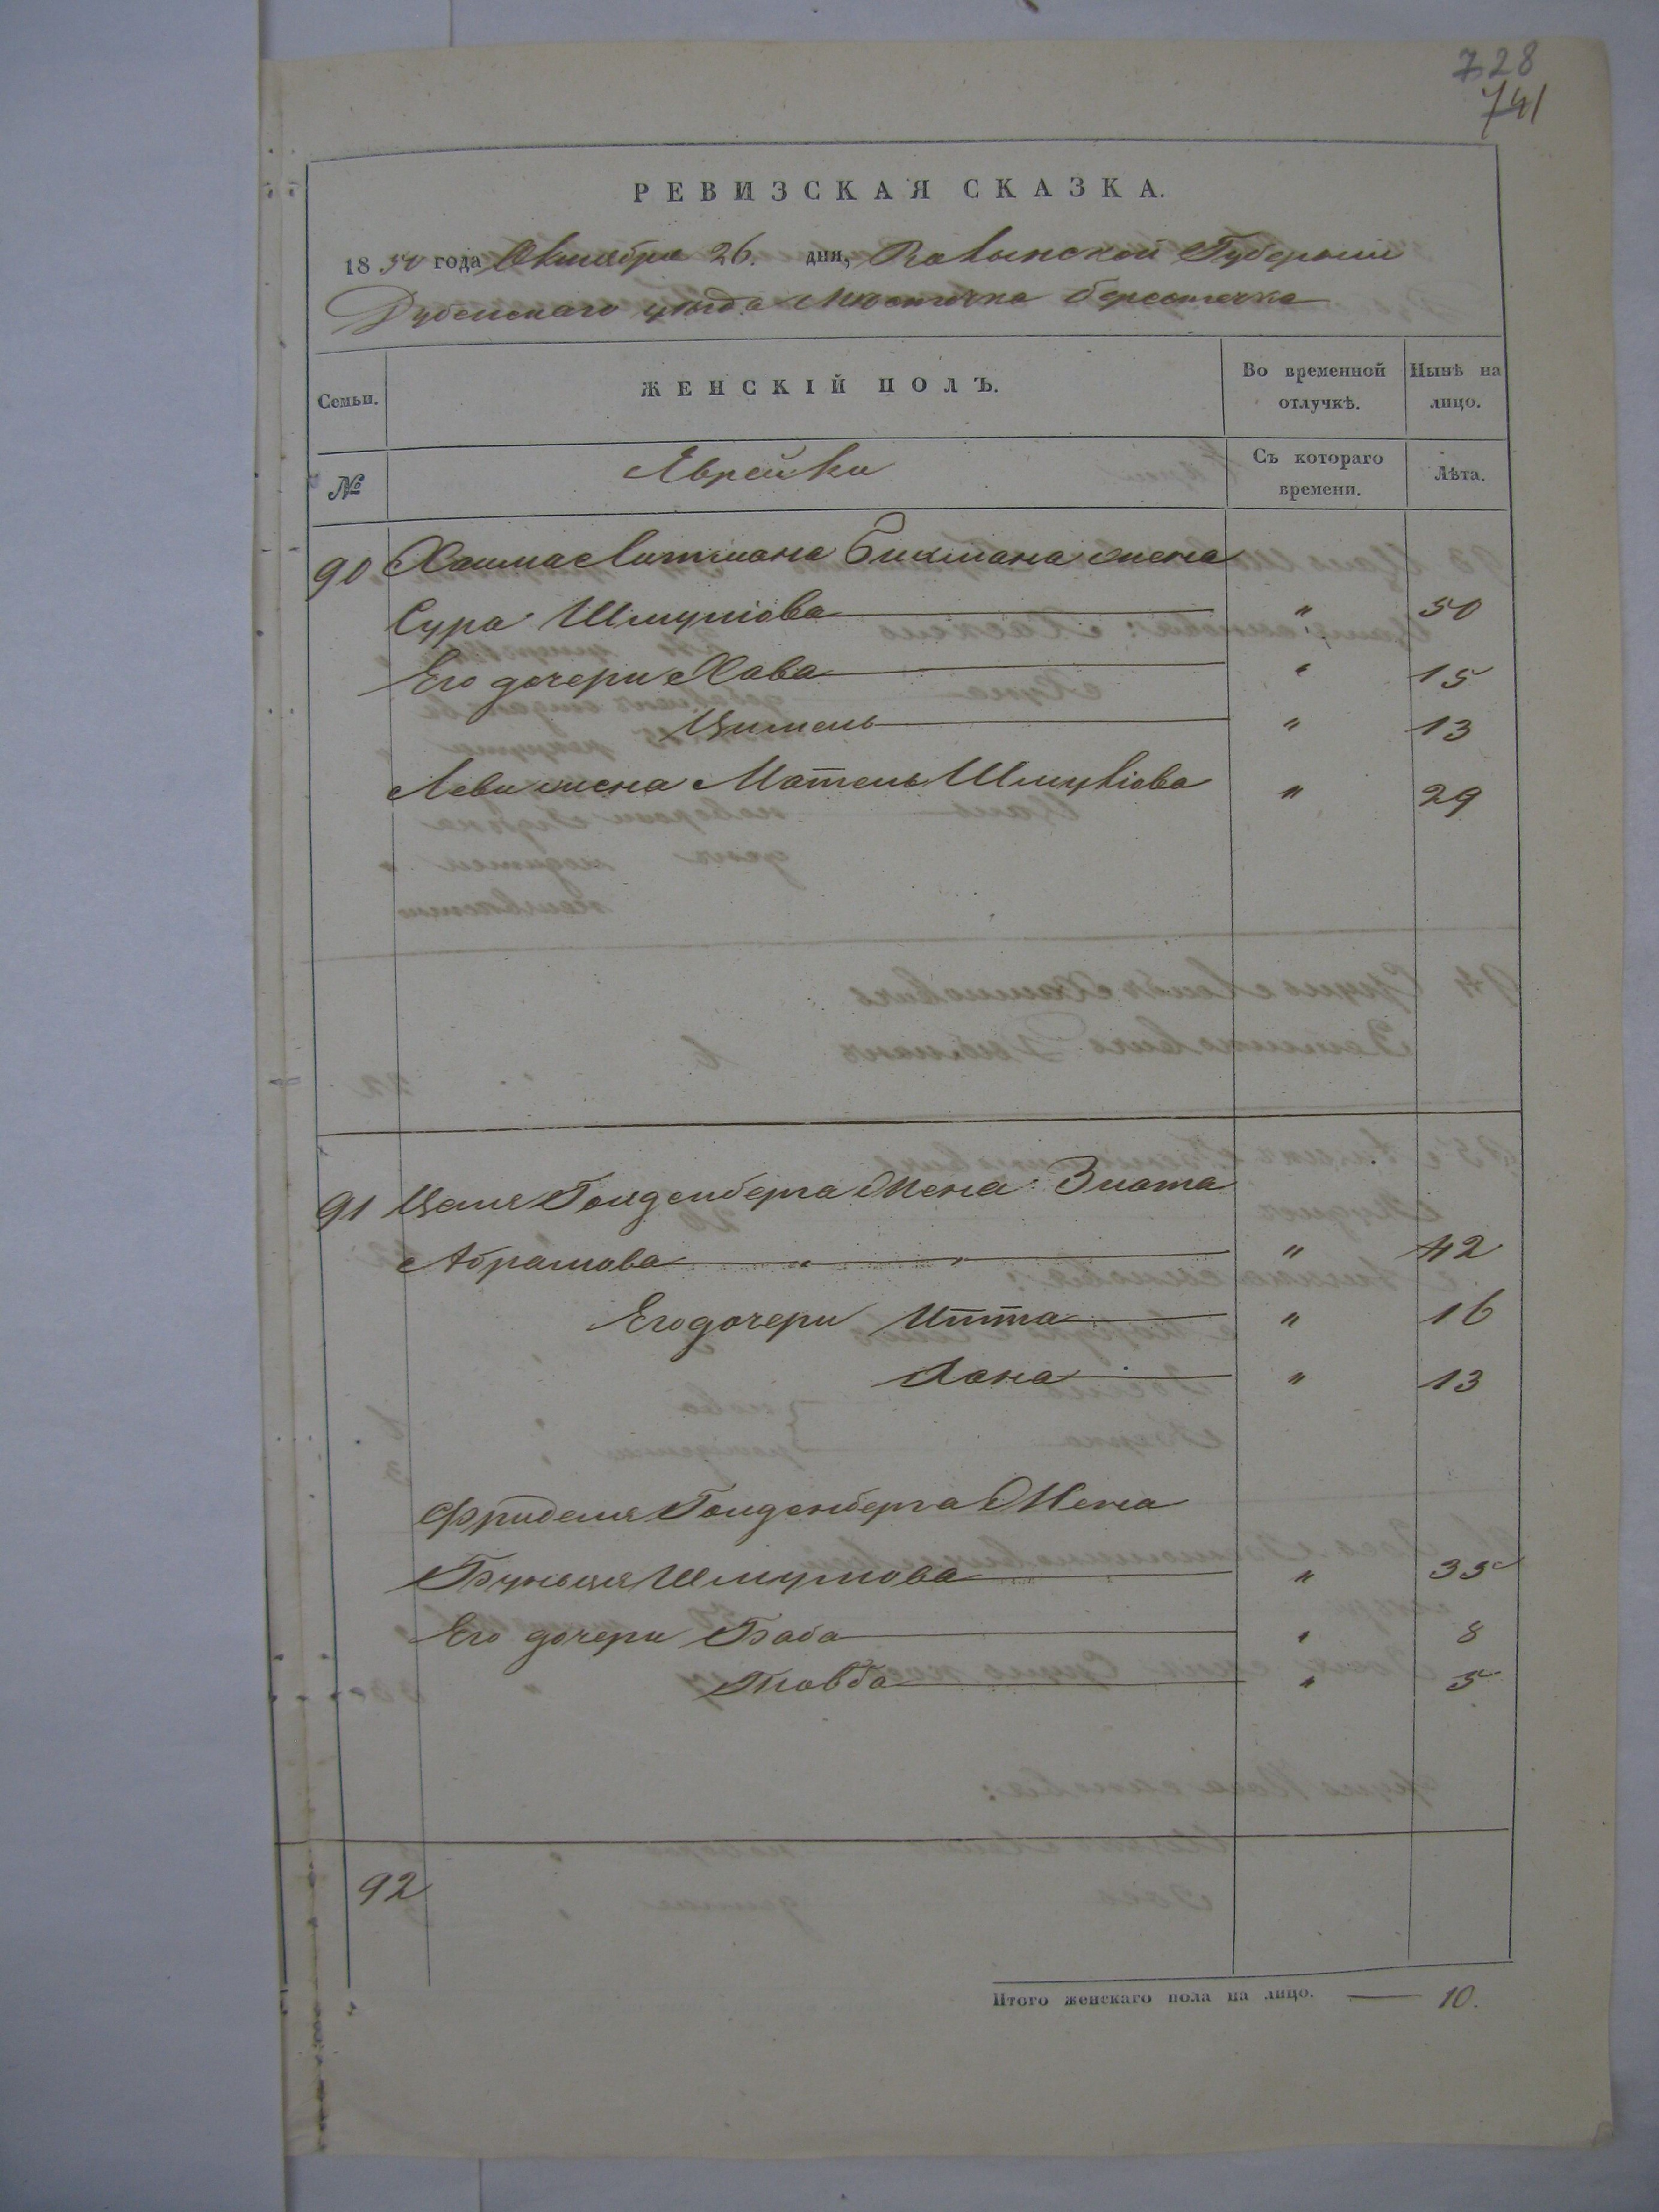 728
741
РЕВИЗСКАЯ СКАЗКА.
1850 года Октября 26. дня, Волынской Губернии
Дубенскаго уезда местечка Берестечка
Семьи.
ЖЕНСКІЙ ПОЛЪ.
Во временной отлучкѣ.
Нынѣ на лицо.
№
Еврейки
Съ котораго времени.
Лѣта.
90 Хаима Литмана Бикмана жена
Сура Шмулiова " 50
Его дочери Хава " 15
Цитель " 13
Леви жена Мотель Шмулiова " 29
91 Целя Голденберга Жена Злота
Абрамова " " " 42
Его дочери Итта " 16
Хана " 13
Фриделя Голденберга Жена
Бунця Шмулiова " 35
Его дочери Баба " 8
Товба " 5
92
Итого женскаго пола на лицо. — 10.